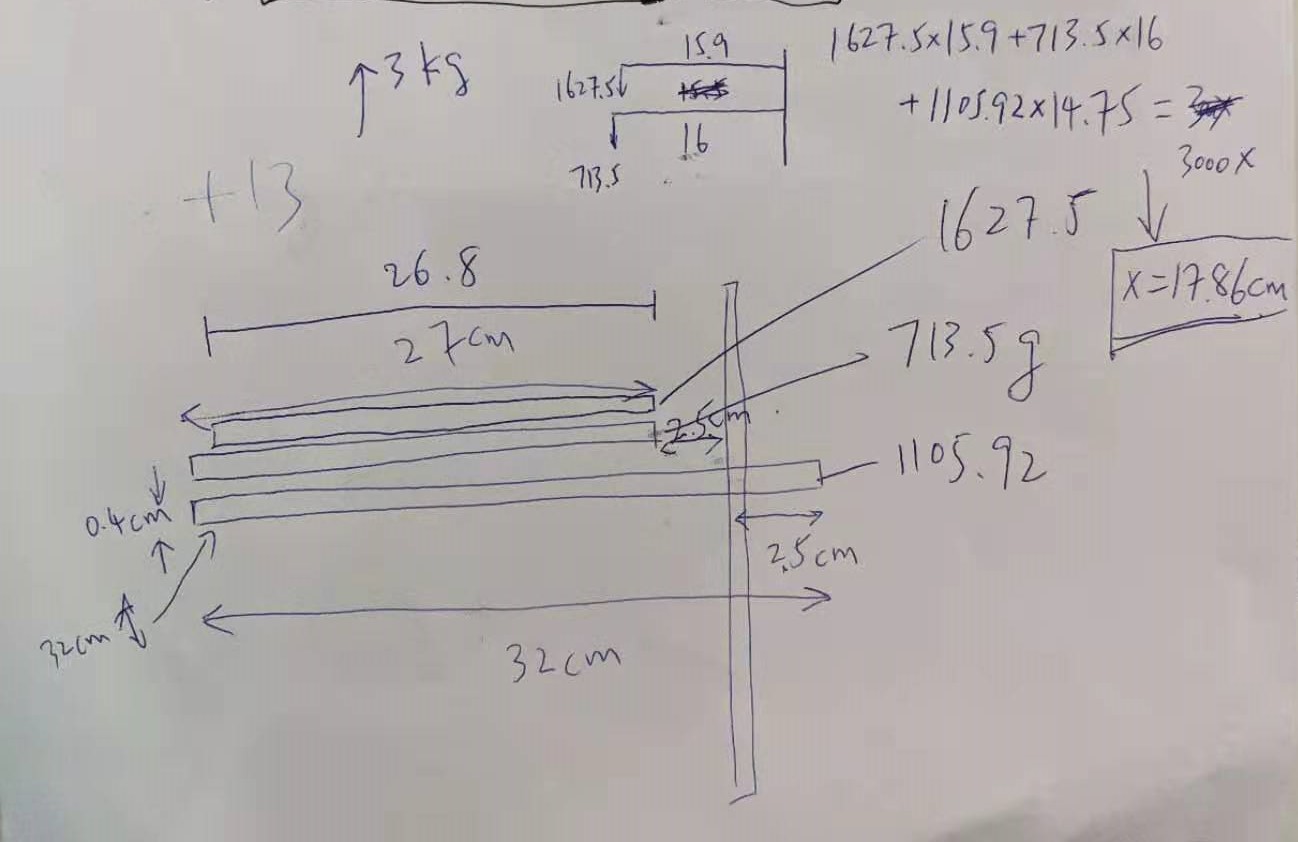 ↑3 kg
15.9
1627.5↓
16
713.5
1627.5×15.9+713.5×16
+1105.92×14.75 =
3000x
x=17.86cm
+13
26.8
27cm
1627.5
713.5g
2.5cm
1105.92
0.4cm
2.5cm
32cm
32cm